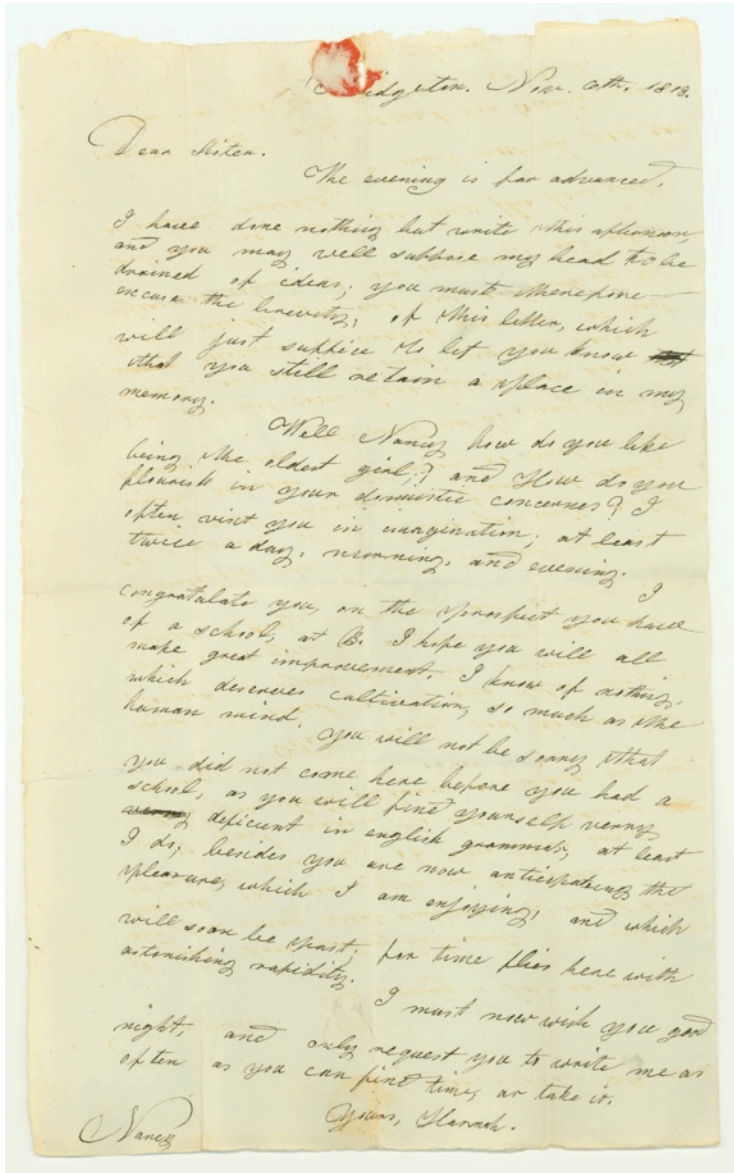 Bridgeton. Nov. 6th. 1818.
Dear Sister.
The evening is far advanced,
I have done nothing but write this afternoon,
and you may well suppose my head to be
drained of ideas; you must therefore
excuse the brevity, of this letter, which
will just suffice to let you know
that you still retain a place in my
memory.
Well Nancy how do you like
being the oldest girl,? and How do you
flourish in your domistic concernes? I
often visit you in imagination; at least
twice a day, morning, and evening.
I
congratulate you, on the prospect you have
of a school, at B. I hope you will all
make great improvement. I know of nothing,
which deserves cultivation, so much as the
human mind.
You will not be sorry that
you did not come here before you had a
school, as you will find yourself verry
verry deficient in english grammar, at least
I do; besides you are now anticipating the
pleasure, which I am enjoying, and which
will soon be past; for time flies here with
astonishing rapidity.
I must now wish you good
night, and only request you to write me as
often as you can find time, or take it.
Yours, Hannah.
Nancy